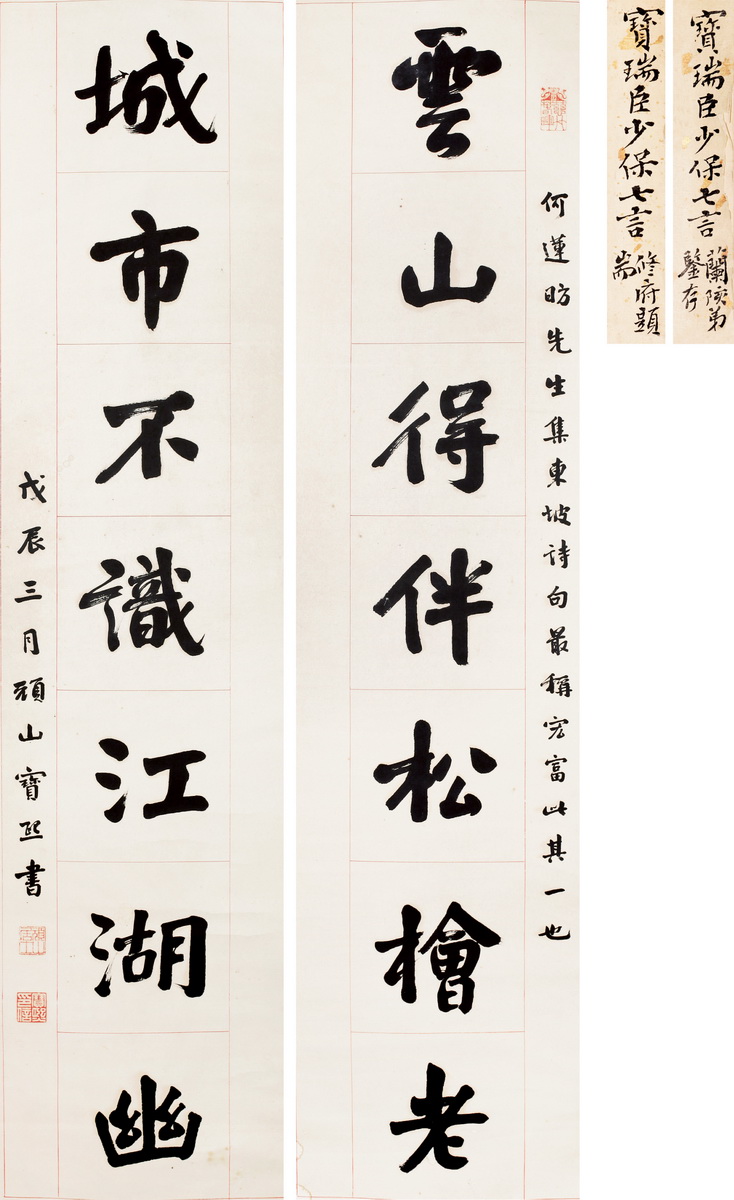 寶瑞臣少保七言
蘭陔弟
鑒存
寶瑞臣少保七言
修府題
耑
何蓮昉先生集東坡詩句最稱宏富此其一也
雲山得伴松檜老
城市不識江湖幽
戊辰三月頑山寶熙書